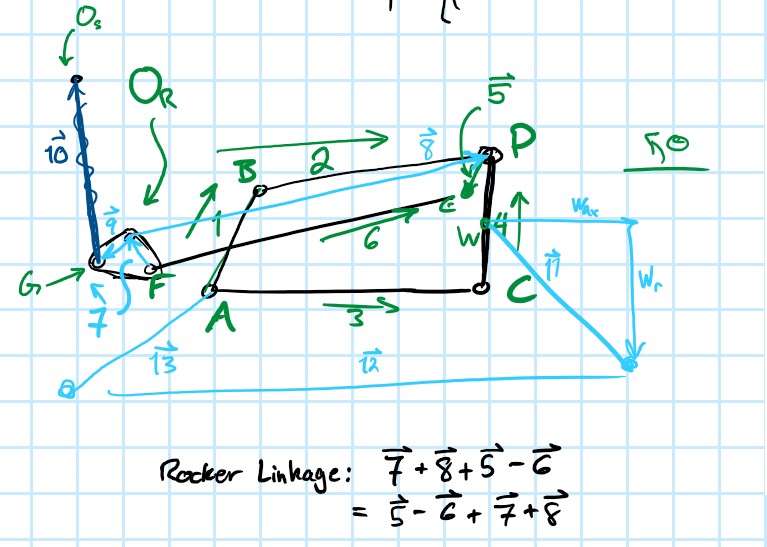 Os
OR
5⃗
10⃗
B
2
8⃗
D
9⃗
1
E
6
W
4
W_Ax
↖θ
G
7
F
A
3
C
11⃗
Wr
13⃗
12⃗
Rocker Linkage: 7⃗ + 8⃗ + 5⃗ - 6⃗
= 5⃗ - 6⃗ + 7⃗ + 8⃗